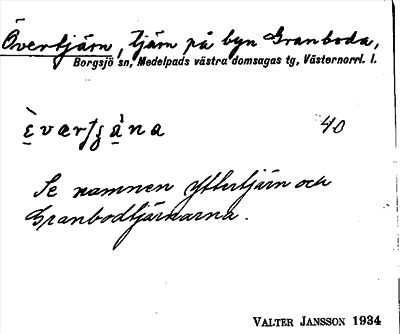 Övertjärn, tjärn på byn Granboda,
Borgsjö sn, Medelpads västra domsagas tg, Västernorrl. l.
40
Se namnen Yttertjärn och
Granbodtjärnarna.
VALTER JANSSON 1934